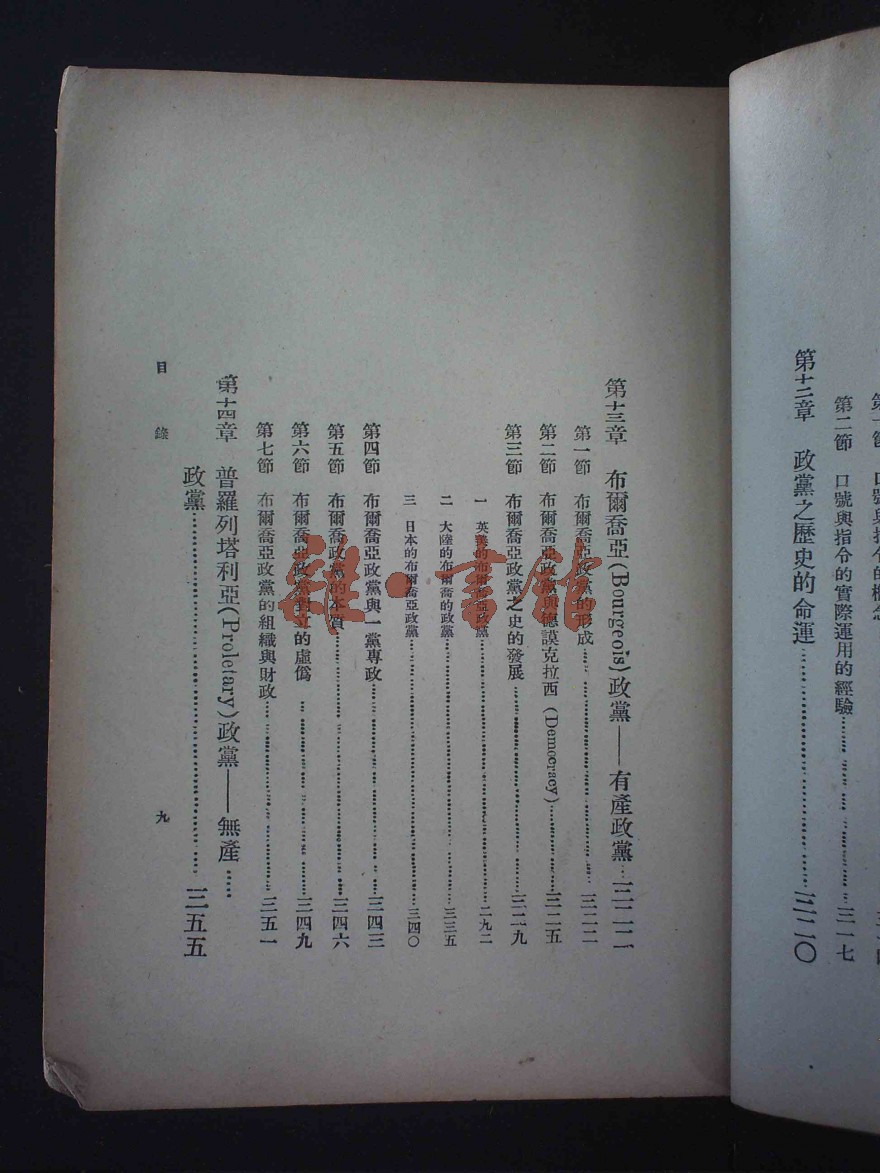 第二節　口號與指令的實際運用的經驗…三一七
第十二章　政黨之歷史的命運…三二〇
第十三章　布爾喬亞(Bourgeois)政黨——有產政黨…三二二
第一節　布爾喬亞政黨的形成…三二二
第二節　布爾喬亞政黨與德謨克拉西(Democracy)…三二五
第三節　布爾喬亞政黨之史的發展…三二九
一　英美的布爾喬亞政黨…二九二
二　大陸的布爾喬的政黨…三三五
三　日本的布爾喬亞政黨…三四〇
第四節　布爾喬亞政黨與一黨專政…三四三
第五節　布爾喬政黨的本質…三四六
第六節　布爾喬亞政黨對立的虛僞…三四九
第七節　布爾喬亞政黨的組織與財政…三五一
第十四章　普羅列塔利亞(Proletary)政黨——無產…
政黨…三五五
目錄　九
雜·書館